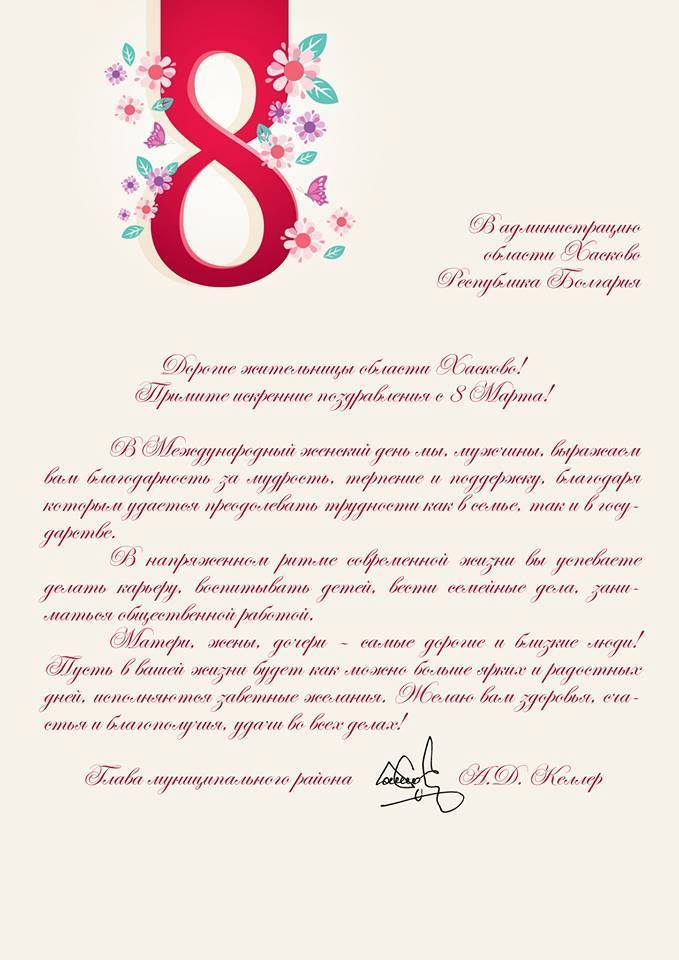 8
В администрацию
области Хасково
Республика Болгария
Дорогие жительницы области Хасково!
Примите искренние поздравления с 8 Марта!
В Международный женский день мы, мужчины, выражаем
вам благодарность за мудрость, терпение и поддержку, благодаря
которым удается преодолевать трудности как в семье, так и в госу-
дарстве.
В напряженном ритме современной жизни вы успеваете
делать карьеру, воспитывать детей, вести семейные дела, зани-
маться общественной работой.
Матери, жены, дочери - самые дорогие и близкие люди!
Пусть в вашей жизни будет как можно больше ярких и радостных
дней, исполняются заветные желания. Желаю вам здоровья, сча-
стья и благополучия, удачи во всех делах!
Глава муниципального района А.Д. Келлер